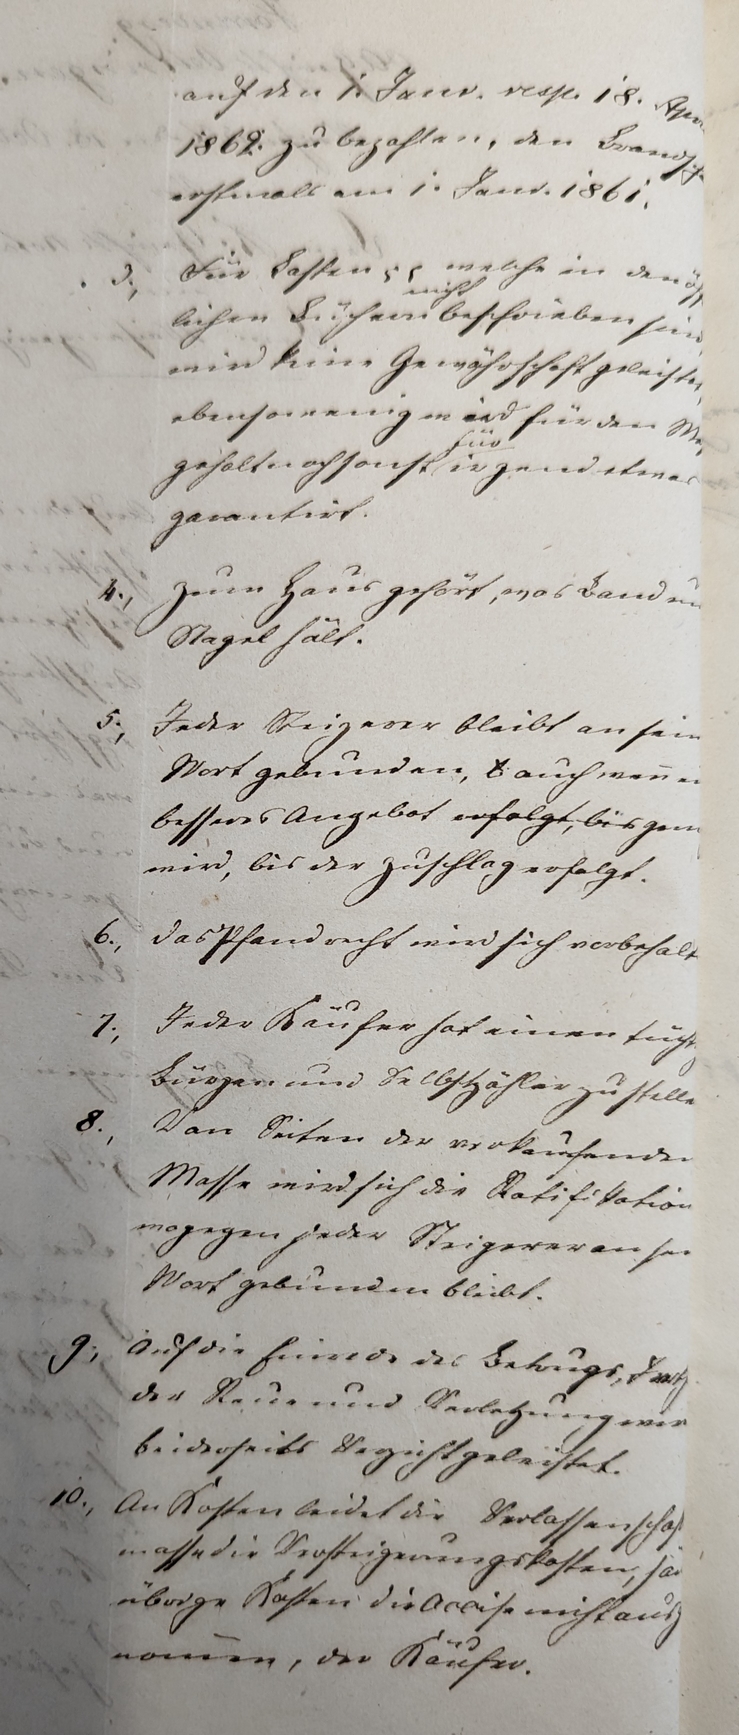 auf den 1. Janr. resp. 18. Apr
1862. zu bezahlen, den Brandsch
erstmals am 1. Janr. 1861.
3., Für Lasten, welche in den öff
lichen Büchern nicht beschrieben sind,
wird keine Gewährschaft geleistet,
ebensowenig wird für den Me
gehalt noch sonst für irgend etwas
garantirt.
4., Zum Haus gehört, was Band un
Nagel hält.
5., Jeder Steigerer bleibt an sein
Wort gebunden, auch wenn ei
besseres Angebot erfolgt, bis gem
wird, bis der Zuschlag erfolgt.
6., Das Pfandrecht wird sich vorbehalt
7., Jeder Käufer hat einen tücht
Bürgen und Selbstzahler zu stelle
8., Von Seiten der verkaufenden
Masse wird sich die Ratifikation
wogegen jeder Steigerer an sei
Wort gebunden bleibt.
9., Auf die Einrede des Betrugs,
der Reue und Verletzung wir
beiderseits Verzicht geleistet.
10., An Kosten leidet die Verlassenschaf
masse die Versteigerungskosten,
übrige Kosten die Accise nicht ausg
nom̅en, der Käufer.